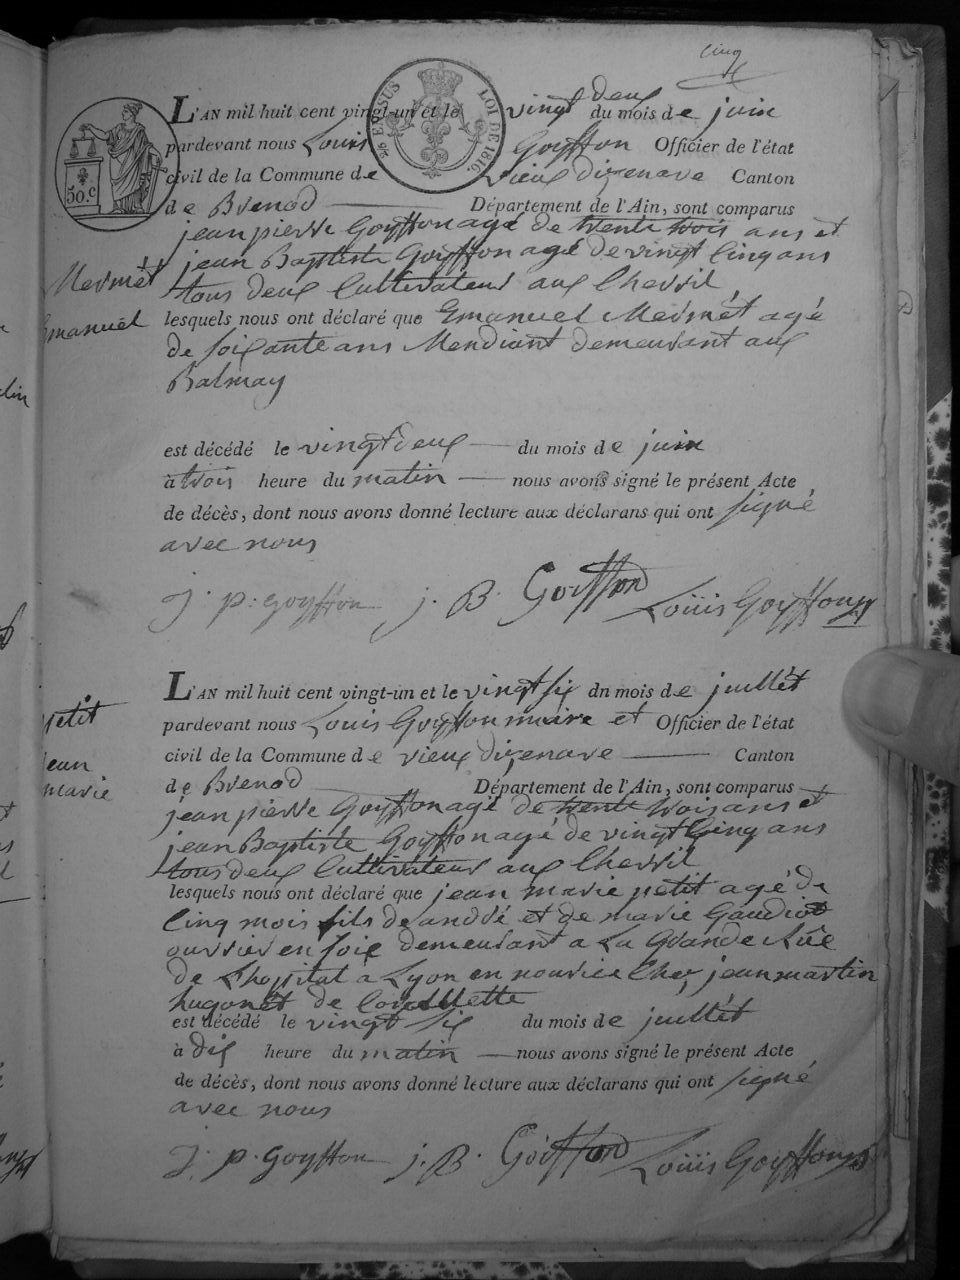 cinq
50. C
& EN SUS
LOI DE 1816
L'AN mil huit cent vingt-un et le vingt deux du mois de juin
pardevant nous Louis Goyffon Officier de l'état
civil de la Commune de vieux dizenave Canton
de Brenod Département de l'Ain, sont comparus
jean pierre Goyffon agé de trente trois ans et
jean Baptiste Goyffon agé de vingt Cinq ans
tous deux Cultivateur aux Cherril
Mermét
Emanuel
lesquels nous ont déclaré que Emanuel Mermét agé
de soixante ans Mendiant demeurant aux
Balmay
est décédé le vingt deux du mois de juin
à trois heure du matin nous avons signé le présent Acte
de décès, dont nous avons donné lecture aux déclarans qui ont signé
avec nous
J. p. goyffon J. B. Goiffon Louis Goyffon
L'AN mil huit cent vingt-un et le vingt six dn mois de juillét
pardevant nous Louis Goyffon maire et Officier de l'état
civil de la Commune de vieux dizenave Canton
de Brenod Département de l'Ain, sont comparus
petit
jean
marie
jean pierre Goyffon agé de trente trois ans et
jean Baptiste Goyffon agé de vingt Cinq ans
tous deux Cultivateur aux Cherril
lesquels nous ont déclaré que jean marie petit agé de
Cinq mois fils de andré et de marie Gaudiot
ouvrier en soie demeurant a La Grande Rüe
de L'hopital a Lyon en nourice Chez jean martin
hugonét de
est décédé le vingt six du mois de juillét
à dix heure du matin nous avons signé le présent Acte
de décès, dont nous avons donné lecture aux déclarans qui ont signé
avec nous
J. p. goyffon J. B. Goiffon Louis Goyffon